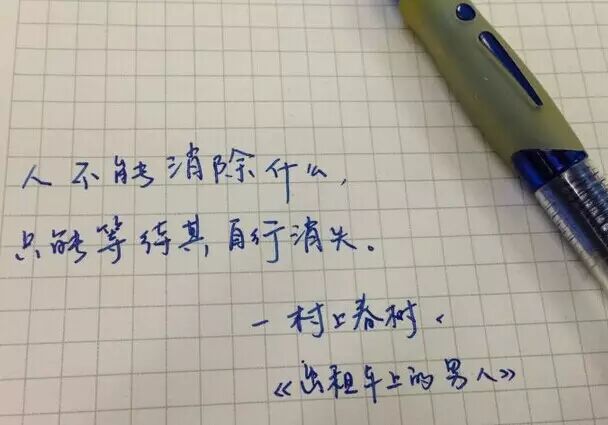 人不能消除什么，
只能等待其自行消失。
— 村上春树.
《出租车上的男人》